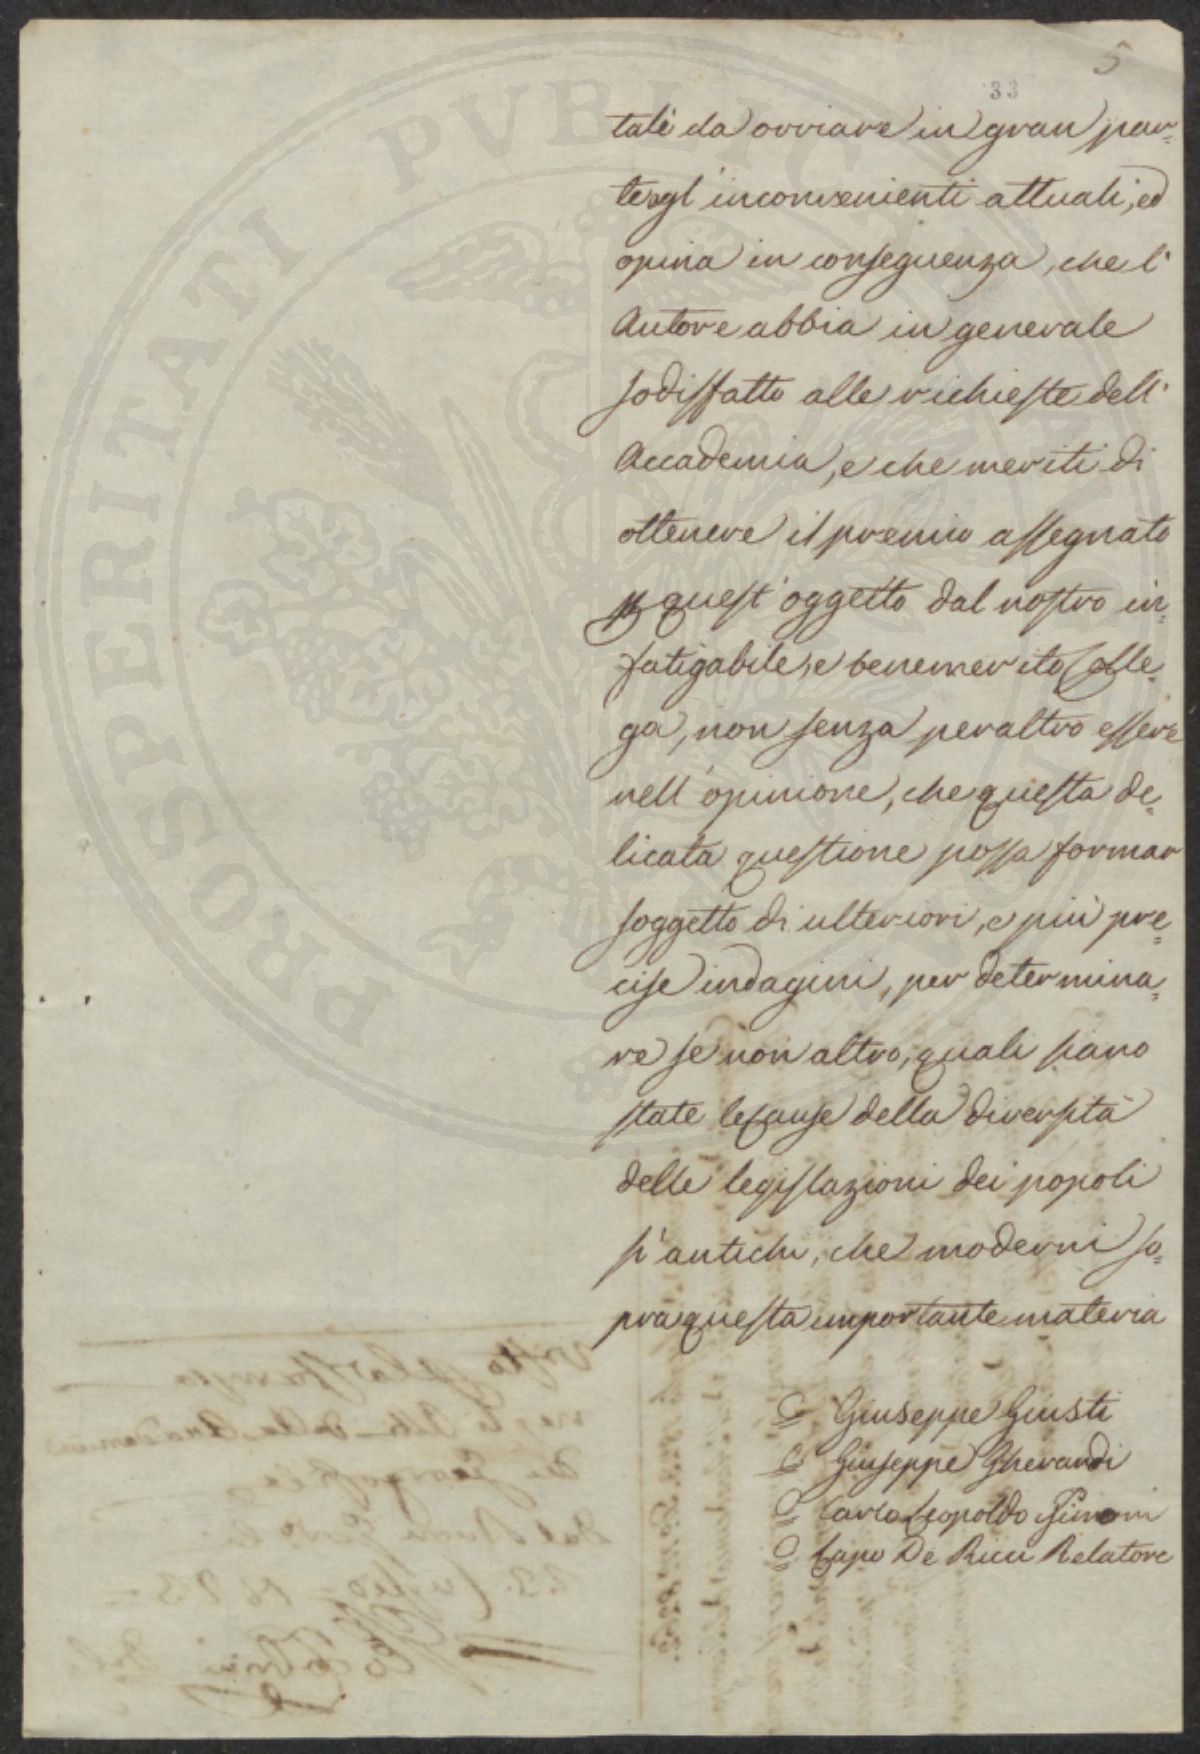 5
33
tale da ovviare in gran par=
te agl'inconvenienti attuali, ed
opina in conseguenza, che l'
Autore abbia in generale
sodisfatto alle richieste dell'
Accademia, e che meriti di
ottenere il premio assegnato
p quest'oggetto dal nostro in=
fatigabile, e benemerito Colle=
ga, non senza peraltro essere
nell'opinione, che questa de=
licata questione possa formar
soggetto di ulteriori, e più pre=
cise indagini, per determina=
re se non altro, quali siano
state le cause della diversità
delle legislazioni dei popoli
sì antichi, che moderni so=
pra questa importante materia
Giuseppe Giusti
Giuseppe Gherardi
Carlo Leopoldo
Lapo De Ricci Relatore
PROSPERITATI PVBLICAE